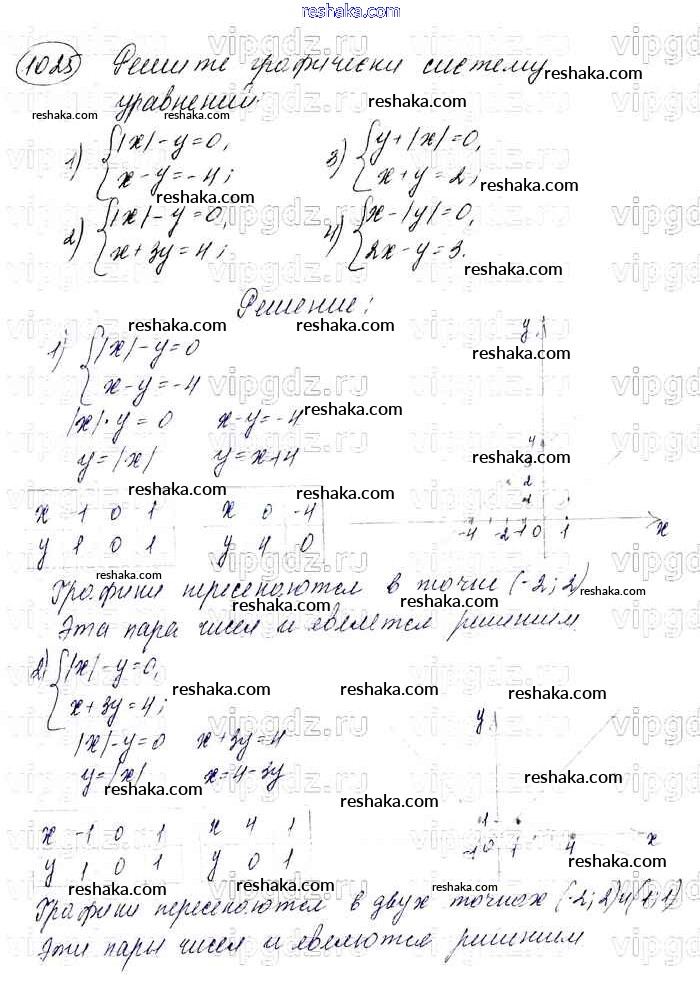 reshaka.com
1025 Решите графически систему
уравнений:
1) { |x| - y = 0, x - y = -4;
3) { y + |x| = 0, x + y = 2;
2) { |x| - y = 0, x + 3y = 4;
4) { x - |y| = 0, 2x - y = 3.
Решение:
1) { |x| - y = 0 x - y = -4
|x| - y = 0 x - y = -4
y = |x| y = x + 4
x -1 0 1 x 0 -4
y 1 0 1 y 4 0
y
4
3
2
1
-4 -2 -1 0 1 x
Графики пересекаются в точке (-2; 2)
Эта пара чисел и является решением
2) { |x| - y = 0, x + 3y = 4;
|x| - y = 0 x + 3y = 4
y = |x| x = 4 - 3y
x -1 0 1 x 4 1
y 1 0 1 y 0 1
y
1
-1 0 1 4 x
Графики пересекаются в двух точках (-2; 2) и (1; 1)
Эти пары чисел и являются решением